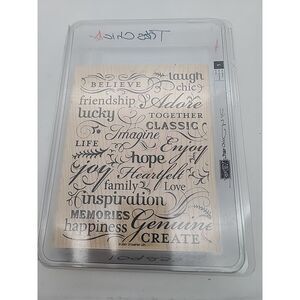 Très Chic
BELIEVE
laugh
chic
friendship
Adore
lucky
TOGETHER
CLASSIC
Imagine
LIFE
Enjoy
hope
joy
Heartfelt
family
Love
inspiration
MEMORIES
Genuine
happiness
CREATE